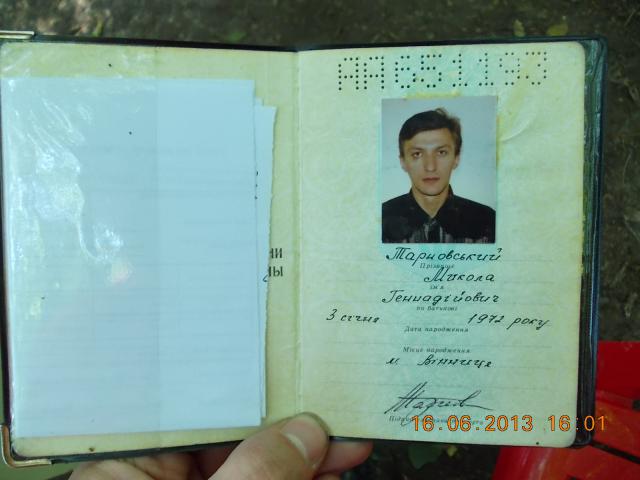 АА651193
НИ
Ы
Тарновський
Прізвище
Микола
ім'я
Геннадійович
по батькові
3 січня 1972 року
Дата народження
Місце народження
м. Вінниця
16.06.2013 16:01